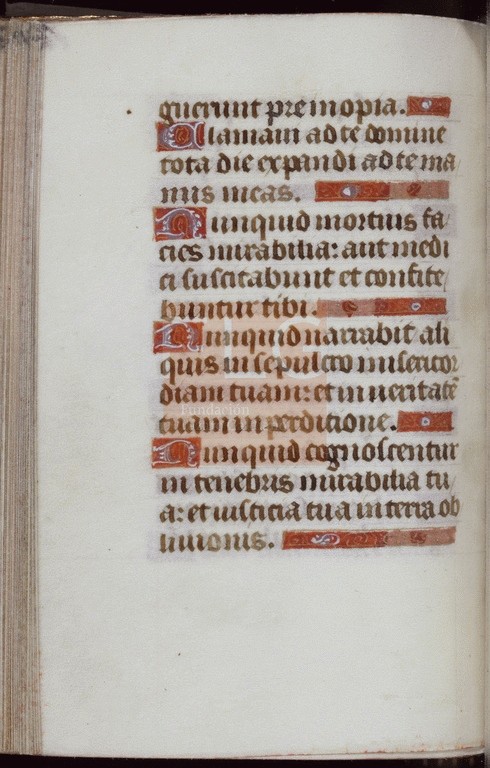 guerunt pre inopia.
Clamaui ad te domine
tota die expandi ad te ma
nus meas.
Nunquid mortuis fa
cies mirabilia: aut medi
ci suscitabunt et confite
buntur tibi.
Nunquid narrabit ali
quis in sepulcro misericor
diam tuam: et in ueritatē
tuam in perdicione.
Fundación
Nunquid cognoscentur
in tenebris mirabilia tu
a: et iusticia tua in terra ob
liuionis.